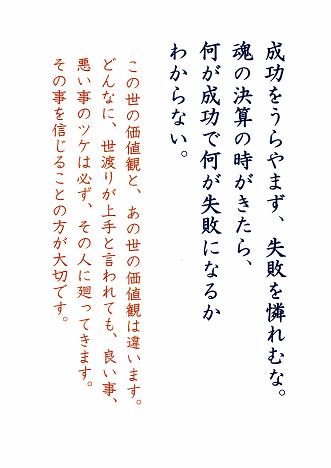 成功をうらやまず、失敗を憐れむな。
魂の決算の時がきたら、
何が成功で何が失敗になるか
わからない。
この世の価値観と、あの世の価値観は違います。
どんなに、世渡りが上手と言われても、良い事、
悪い事のツケは必ず、その人に廻ってきます。
その事を信じることの方が大切です。